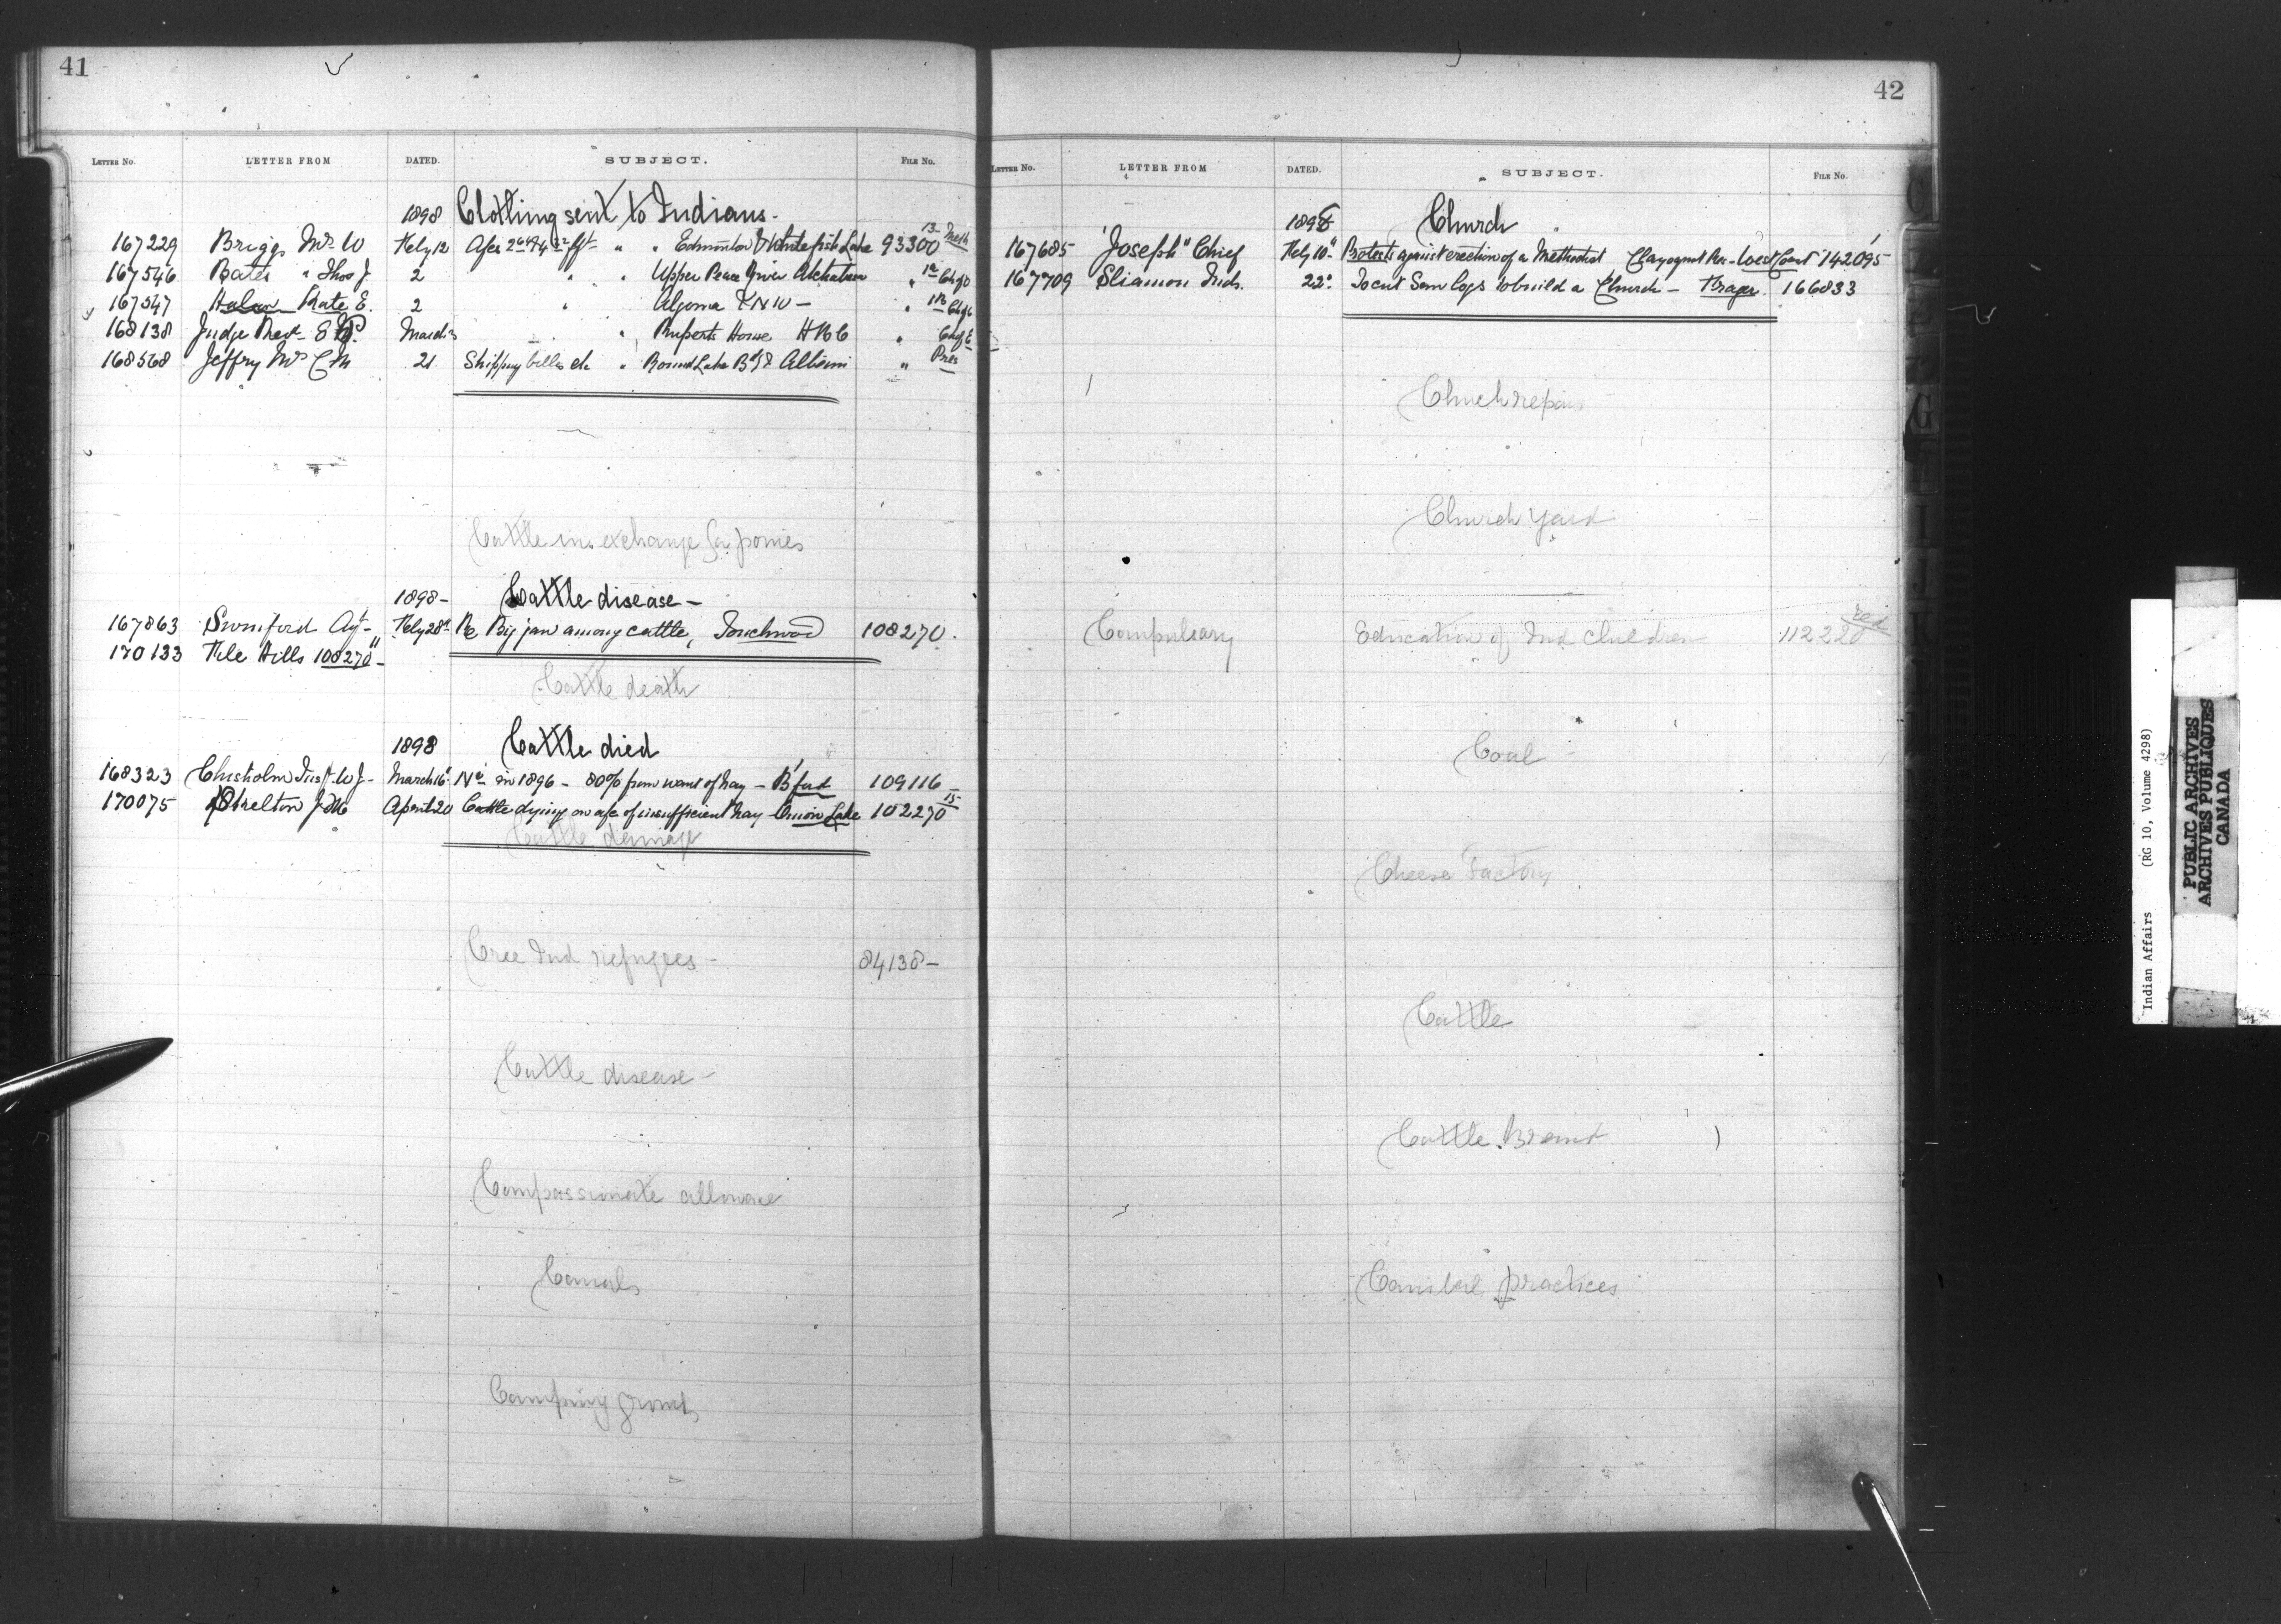 41
LETTER No. LETTER FROM DATED. SUBJECT. FILE No.
1898 Clothing sent to Indians -
167229 Briggs Mrs W Feby 12 " " Edmonton & Whitefish Lake 93300 13 Meth
167546 Bates " Thos J. 2 " " Upper Peace River "
167547 Kate E. 2 " Algoma & NW - "
168138 Judge Revd E March " Ruperts House HBC "
168568 Jeffry Mrs C M 21 Shipping bills etc " Round Lake " Pres
Cattle in exchange for ponies
1898 - Cattle disease -
167863 Swinford Agt - Feby 28th Re Big jaw among cattle, Touchwood 108270.
170133 File Hills 108270 -
Cattle death
1898 Cattle died
168323 Chisholm Inspt W J - March 16" No in 1896 - 80% from want of hay - B'ford 109116
170075 April 20 Cattle dying on a/c of insufficient hay - Onion Lake 102270 15
Cattle damage
Cree Ind refugees - 84138 -
Cattle disease -
Compassionate allowance
Canals
Camping grounds
42
LETTER No. LETTER FROM DATED. SUBJECT. FILE No.
1898 Church
167685 "Joseph" Chief Feby 10" Protests against erection of a Methodist Clayoquot Res - West Coast 142095
167709 Sliamon Inds. 22" To cut Saw logs to build a Church - Fraser. 166833
Church repairs
Church yard
Compulsary Education of Ind children 112220 Red
Coal -
Cheese Factory
Cattle
Cattle Brand
Canibal practices
Indian Affairs (RG 10, Volume 4298)
PUBLIC ARCHIVES
ARCHIVES PUBLIQUES
CANADA